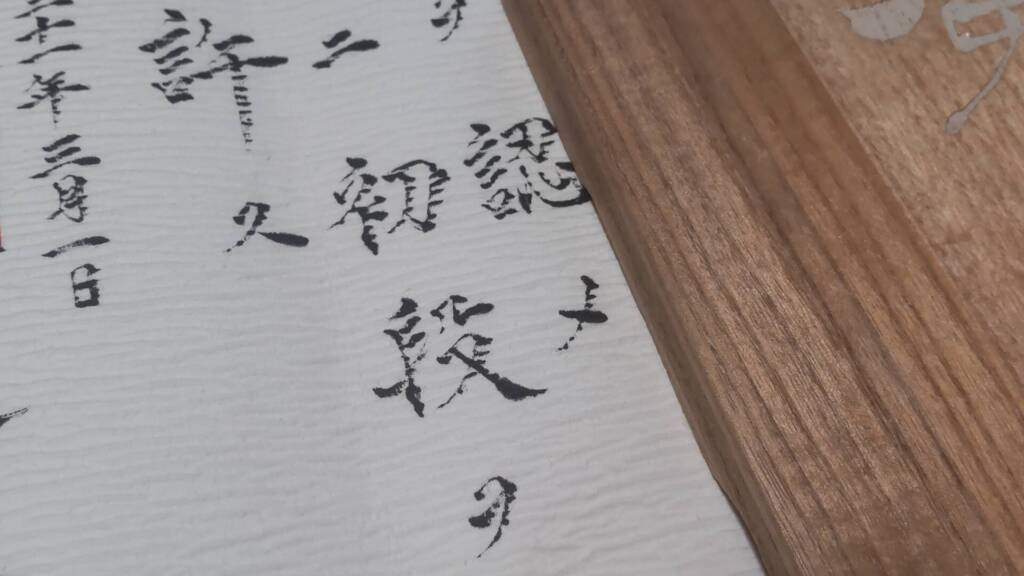 ヲ認メ
ニ初段ヲ
許ス
十一年三月一日